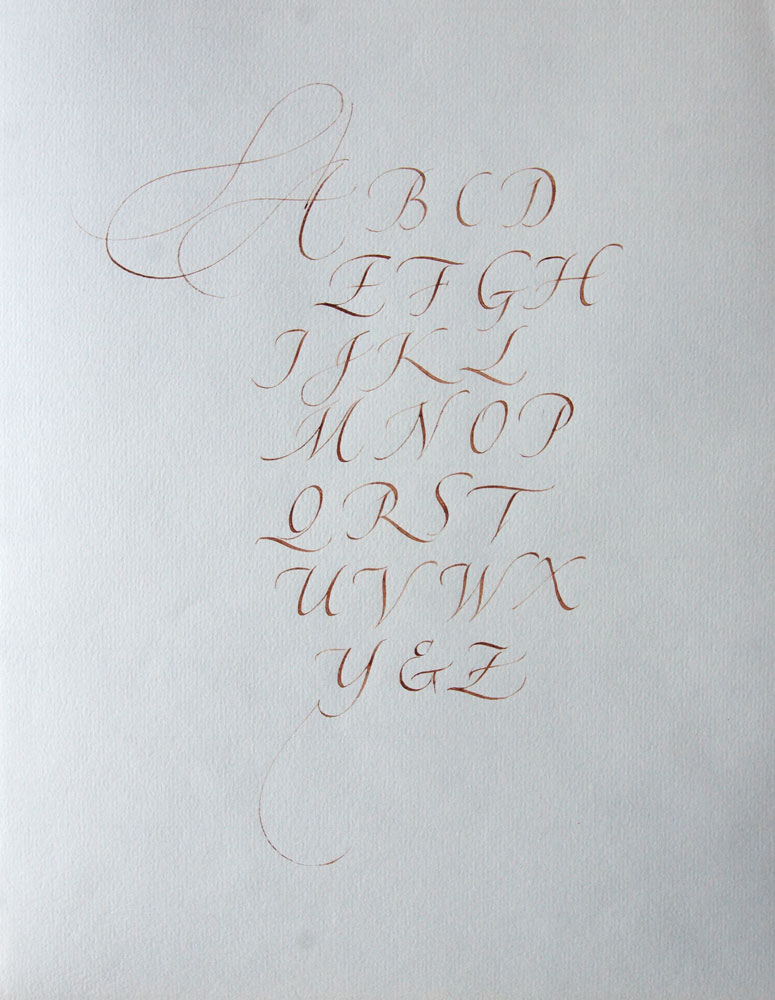 A B C D
E F G H
I J K L
M N O P
Q R S T
U V W X
Y & Z